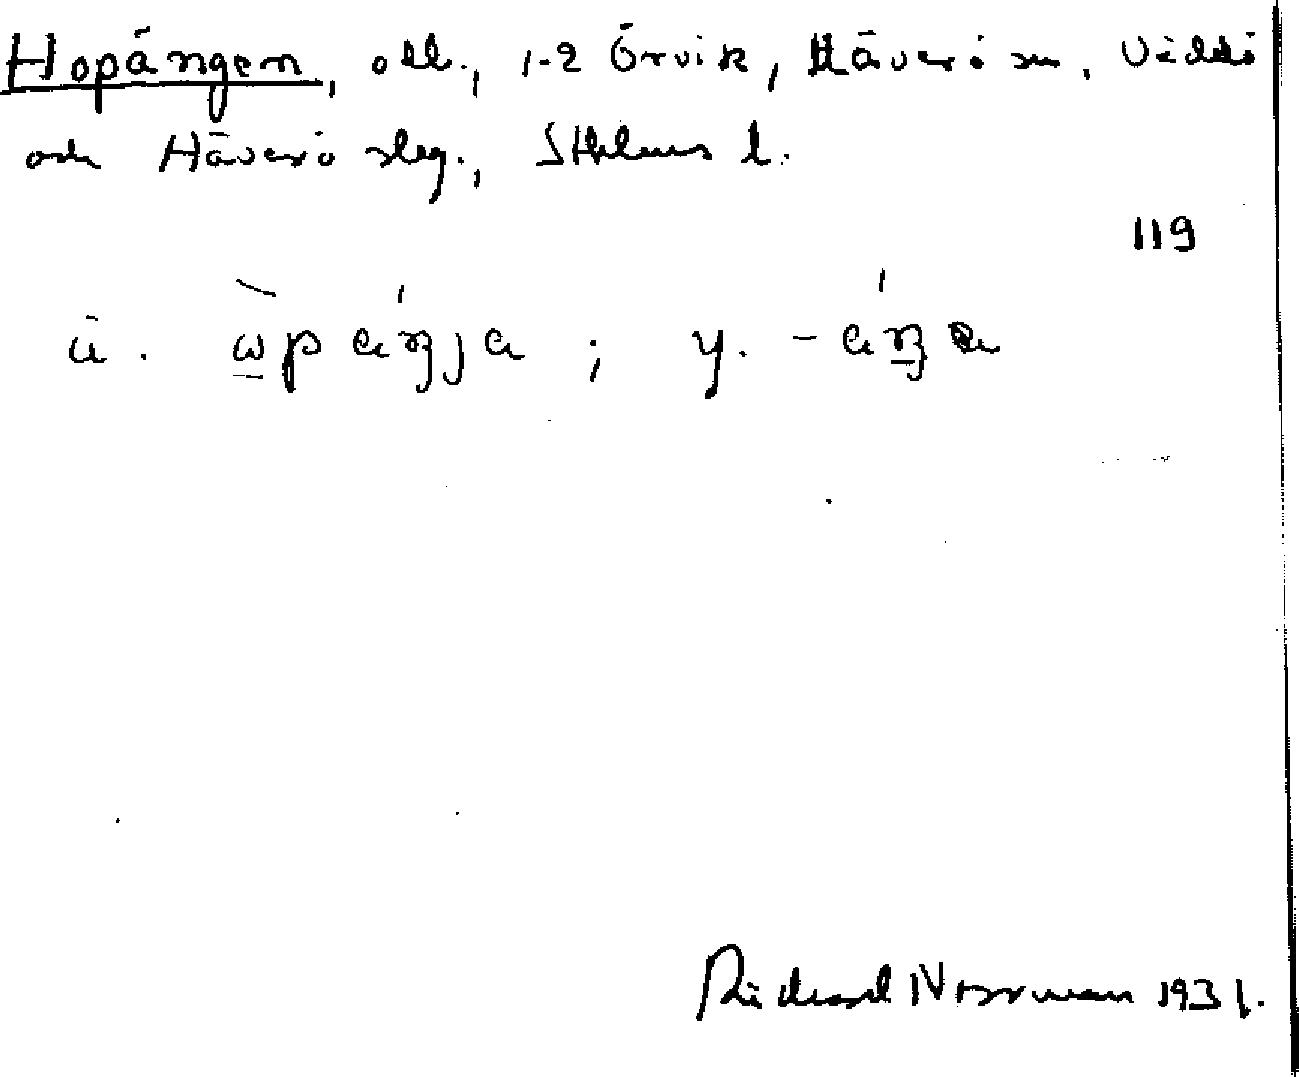 Hopängen, obl., 1-2 Örvik, Häverö sn, Väddö
och Häverö slg., Sthlms l.
119
ä. ; y.
Richard Norrman 1931.